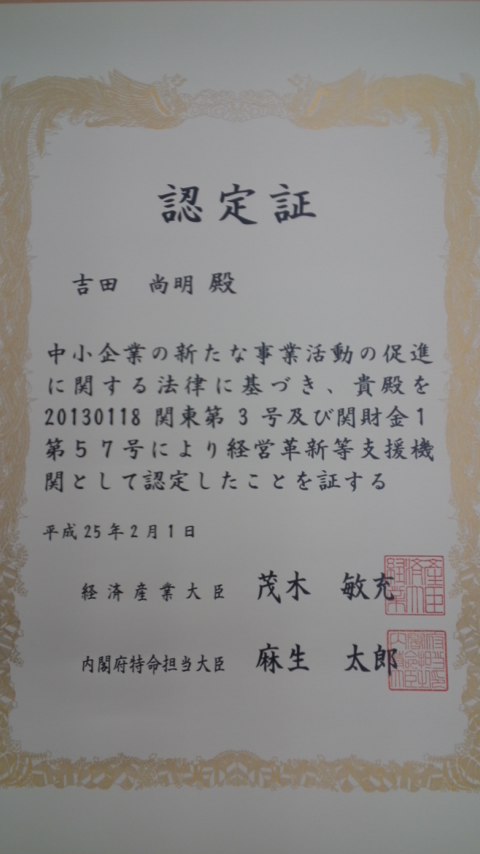 認定証
吉田 尚明 殿
中小企業の新たな事業活動の促進
に関する法律に基づき、貴殿を
20130118 関東第3号及び関財金1
第57号により経営革新等支援機
関として認定したことを証する
平成25年2月1日
経済産業大臣 茂木 敏充
内閣府特命担当大臣 麻生 太郎